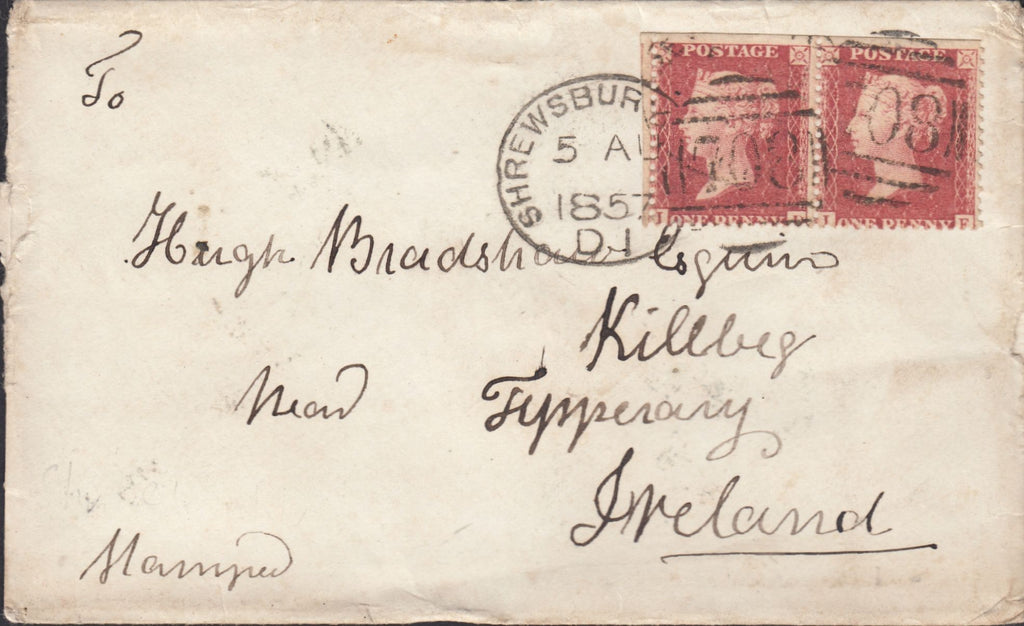 To
POSTAGE POSTAGE
SHREWSBURY
5 AU
1857
D1
708
708
ONE PENNY
ONE PENNY
Hugh Bradshaw Esquire
Killbeg
Near Typperary
Ireland
Stamped